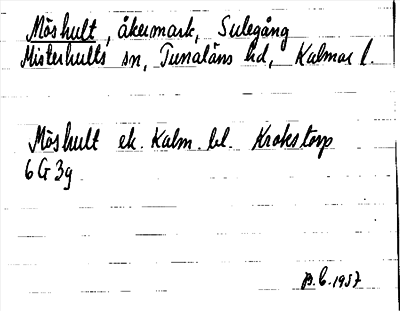 Möshult, åkermark, Sulegång
Misterhults sn, Tunaläns hd, Kalmar l.
Möshult ek. Kalm. bl. Krokstorp
6G 3g
B.C. 1957